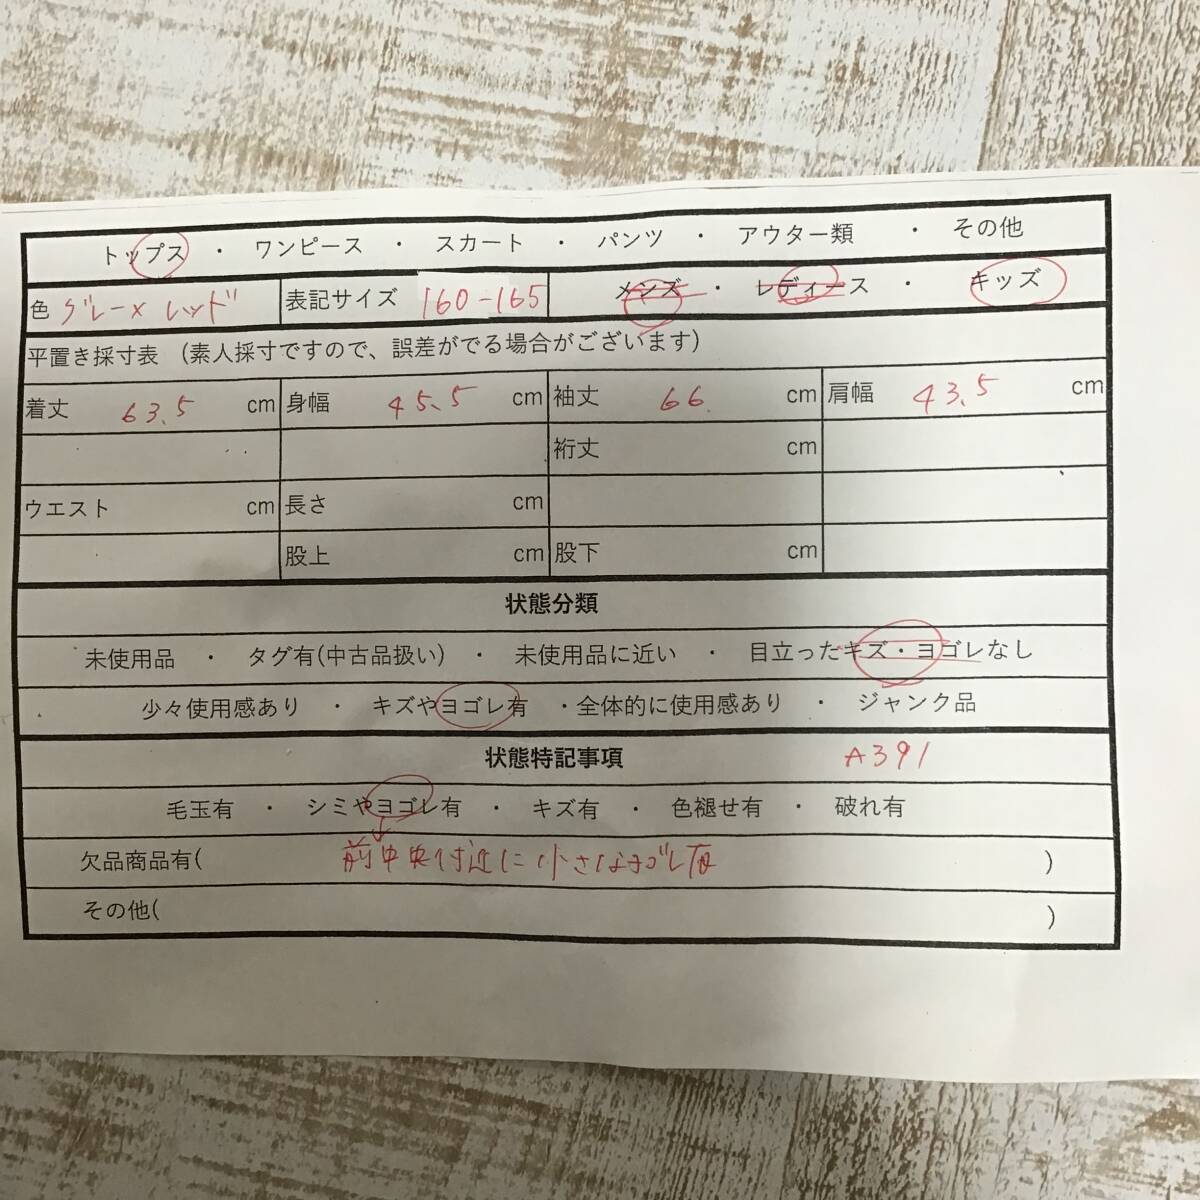 トップス ・ ワンピース ・ スカート ・ パンツ ・ アウター類 ・ その他
色 グレー×レッド 表記サイズ 160-165 メンズ ・ レディース ・ キッズ
平置き採寸表 (素人採寸ですので、誤差がでる場合がございます)
着丈 63.5 cm 身幅 45.5 cm 袖丈 66. cm 肩幅 43.5 cm
裄丈 cm
ウエスト cm 長さ cm
股上 cm 股下 cm
状態分類
未使用品 ・ タグ有(中古品扱い) ・ 未使用品に近い ・ 目立ったキズ・ヨゴレなし
少々使用感あり ・ キズやヨゴレ有 ・全体的に使用感あり ・ ジャンク品
状態特記事項 A391
毛玉有 ・ シミやヨゴレ有 ・ キズ有 ・ 色褪せ有 ・ 破れ有
欠品商品有( 前中央付近に小さなヨゴレ有 )
その他( )